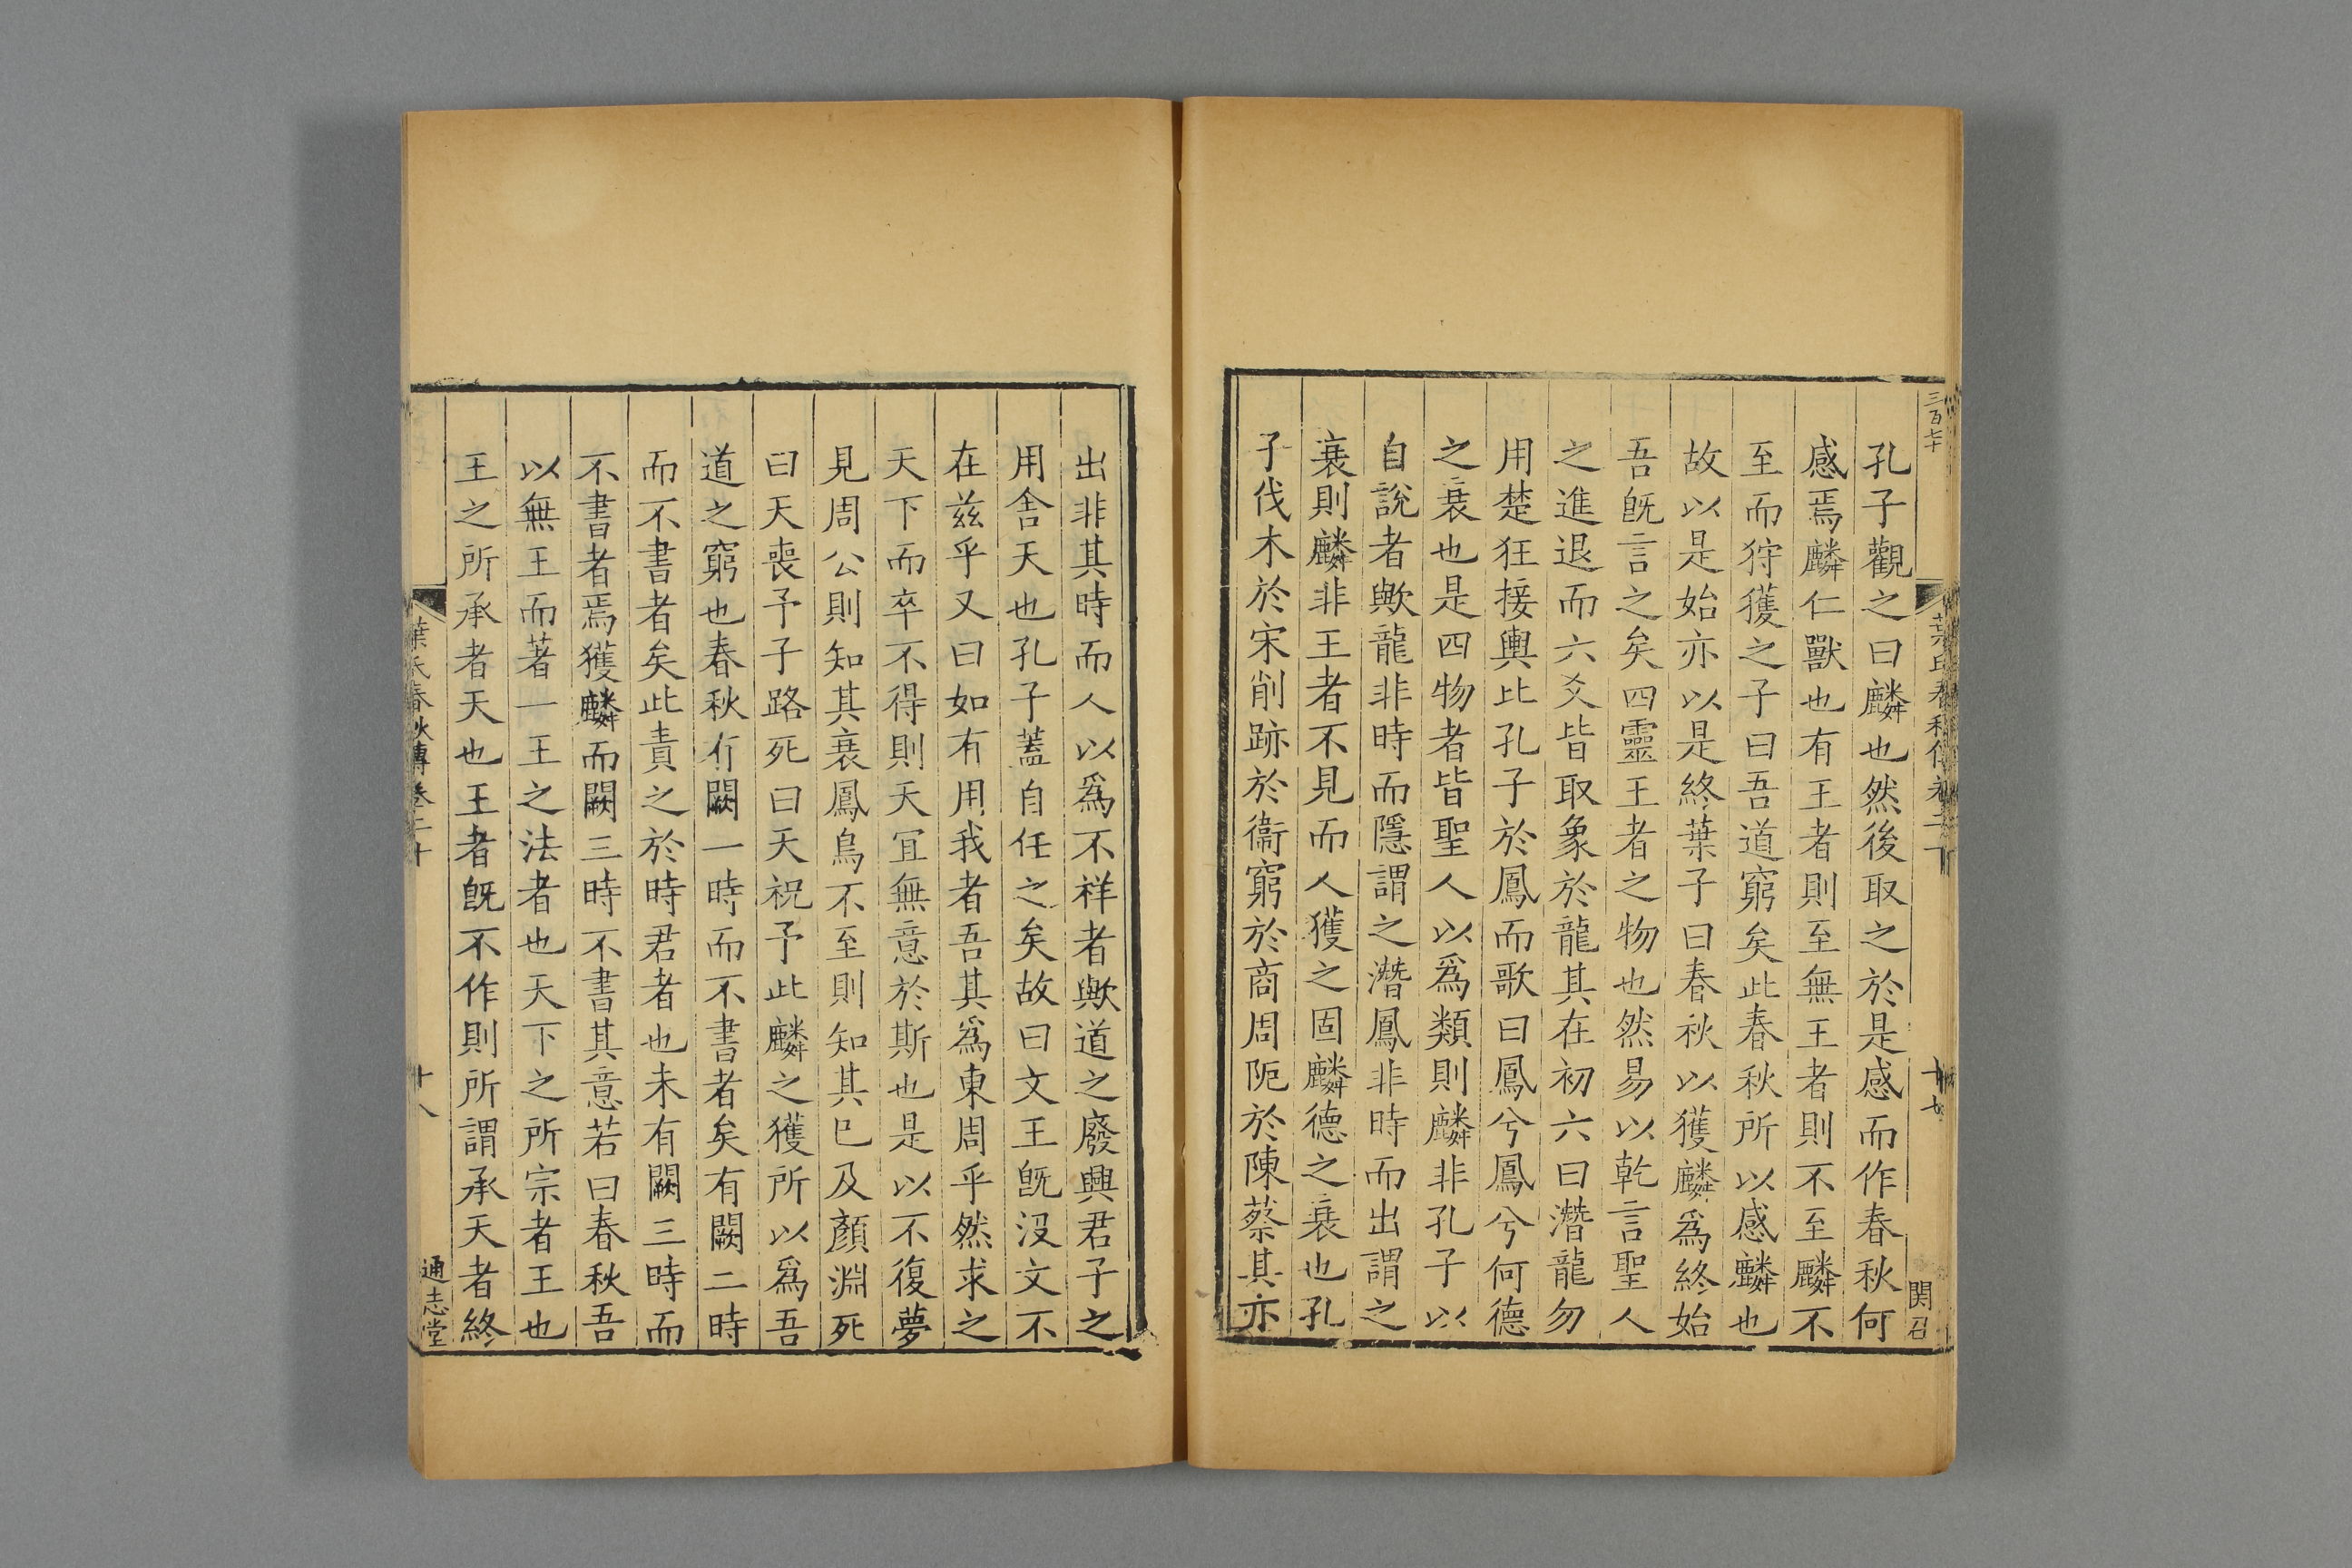 三百七十
孔子觀之曰麟也然後取之於是感而作春秋何
感焉麟仁獸也有王者則至無王者則不至麟不
至而狩獲之子曰吾道窮矣此春秋所以感麟也
故以是始亦以是終葉子曰春秋以獲麟爲終始
吾旣言之矣四靈王者之物也然易以乾言聖人
之進退而六爻皆取象於龍其在初六曰潛龍勿
用楚狂接輿比孔子於鳳而歌曰鳳兮鳳兮何德
之衰也是四物者皆聖人以爲類則麟非孔子以
自說者歟龍非時而隱謂之潛鳳非時而出謂之
衰則麟非王者不見而人獲之固麟德之衰也孔
子伐木於宋削跡於衞窮於商周阨於陳蔡其亦
十七
関召
出非其時而人以爲不祥者歟道之廢興君子之
用舎天也孔子蓋自任之矣故曰文王旣沒文不
在兹乎又曰如有用我者吾其爲東周乎然求之
天下而卒不得則天冝無意於斯也是以不復夢
見周公則知其衰鳳鳥不至則知其已及顏淵死
曰天喪予子路死曰天祝予此麟之獲所以爲吾
道之窮也春秋有闕一時而不書者矣有闕二時
而不書者矣此責之於時君者也未有闕三時而
不書者焉獲麟而闕三時不書其意若曰春秋吾
以無王而著一王之法者也天下之所宗者王也
王之所承者天也王者旣不作則所謂承天者終
葉氏春秋傳卷二十
十八
通志堂